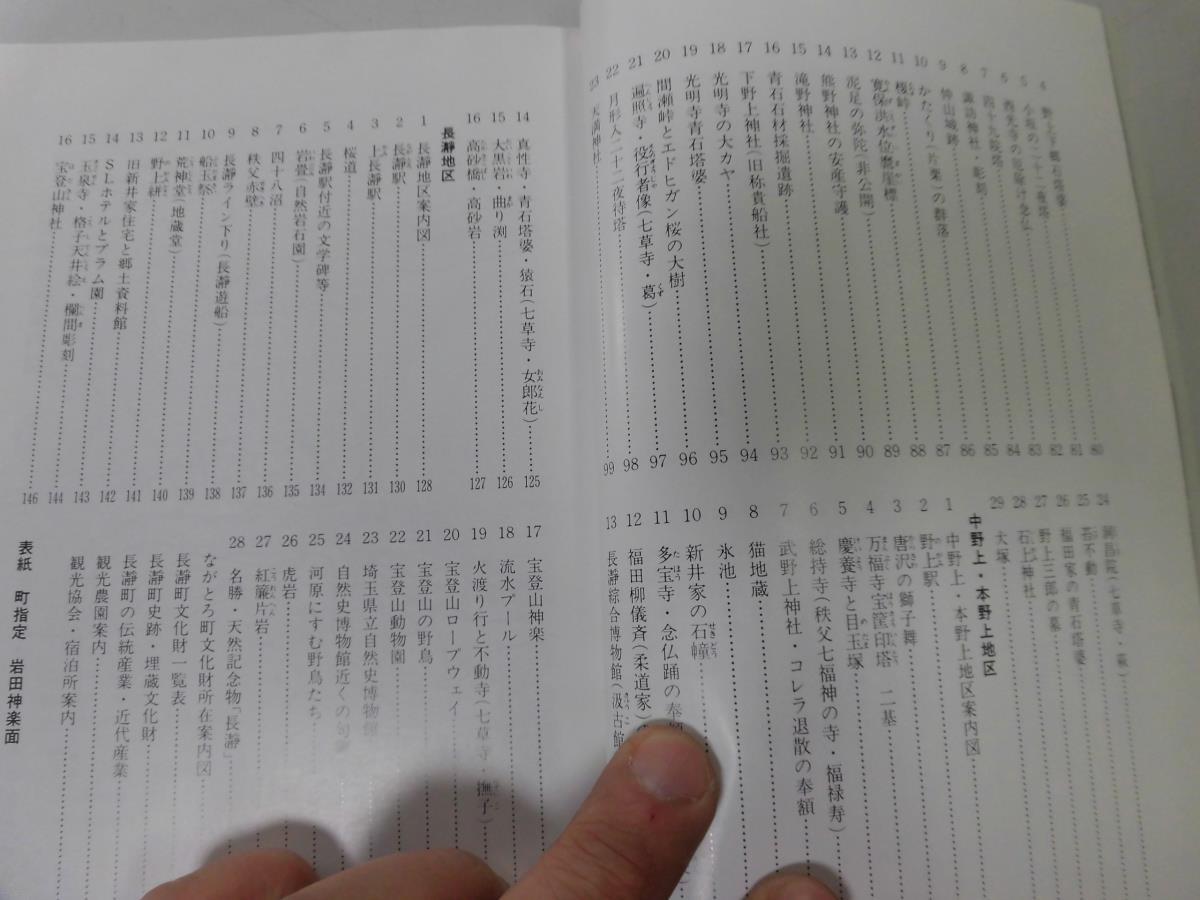 4 野上下郷石塔婆 80
5 小坂の二十二夜塔 81
6 82
7 四十九院塔 83
8 諏訪神社・彫刻 84
9 仲山城跡 85
10 かたくり(片栗)の群落 86
11 桜峠 87
12 寛保洪水位磨崖標 88
13 泥足の弥陀(非公開) 89
14 熊野神社の安産守護 90
15 滝野神社 91
16 青石石材採掘遺跡 92
17 下野上神社(旧称貴船社) 93
18 光明寺の大カヤ 94
19 光明寺青石塔婆 95
20 間瀬峠とエドヒガン桜の大樹 96
21 遍照寺・役行者像(七草寺・葛) 97
22 月形入二十二夜待塔 98
23 天満神社 99
24 (七草寺・萩)
25 苔不動
26 福田家の青石塔婆
27 野上三郎の墓
28 石上神社
29 大塚
中野上・本野上地区
1 中野上・本野上地区案内図
2 野上駅
3 唐沢の獅子舞
4 万福寺宝篋印塔 二基
5 慶養寺と目玉塚
6 総持寺(秩父七福神の寺・福禄寿)
7 武野上神社・コレラ退散の奉額
8 猫地蔵
9 氷池
10 新井家の石幢
11 多宝寺・念仏踊の奉
12 福田柳儀斉(柔道家)
13 長瀞綜合博物館(汲古館
14 真性寺・青石塔婆・猿石(七草寺・女郎花) 125
15 大黒岩・曲り渕 126
16 高砂橋・高砂岩 127
長瀞地区
1 長瀞地区案内図 128
2 長瀞駅 130
3 上長瀞駅 131
4 桜道 132
5 長瀞駅付近の文学碑等 134
6 岩畳(自然岩石園) 135
7 四十八沼 136
8 秩父赤壁 137
9 長瀞ライン下り(長瀞遊船) 138
10 船玉祭 139
11 荒神堂(地蔵堂) 140
12 野上耕 141
13 旧新井家住宅と郷土資料館 142
14 SLホテルとプラム園 143
15 玉泉寺・格子天井絵・欄間彫刻 144
16 宝登山神社 146
17 宝登山神楽
18 流水プール
19 火渡り行と不動寺(七草寺・撫子)
20 宝登山ロープウェイ
21 宝登山の野鳥
22 宝登山動物園
23 埼玉県立自然史博物館
24 自然史博物館近くの句碑
25 河原にすむ野鳥たち
26 虎岩
27 紅簾片岩
28 名勝・天然記念物「長瀞」
ながとろ町文化財所在案内図
長瀞町文化財一覧表
長瀞町史跡・埋蔵文化財
長瀞町の伝統産業・近代産業
観光農園案内
観光協会・宿泊所案内
表紙 町指定 岩田神楽面